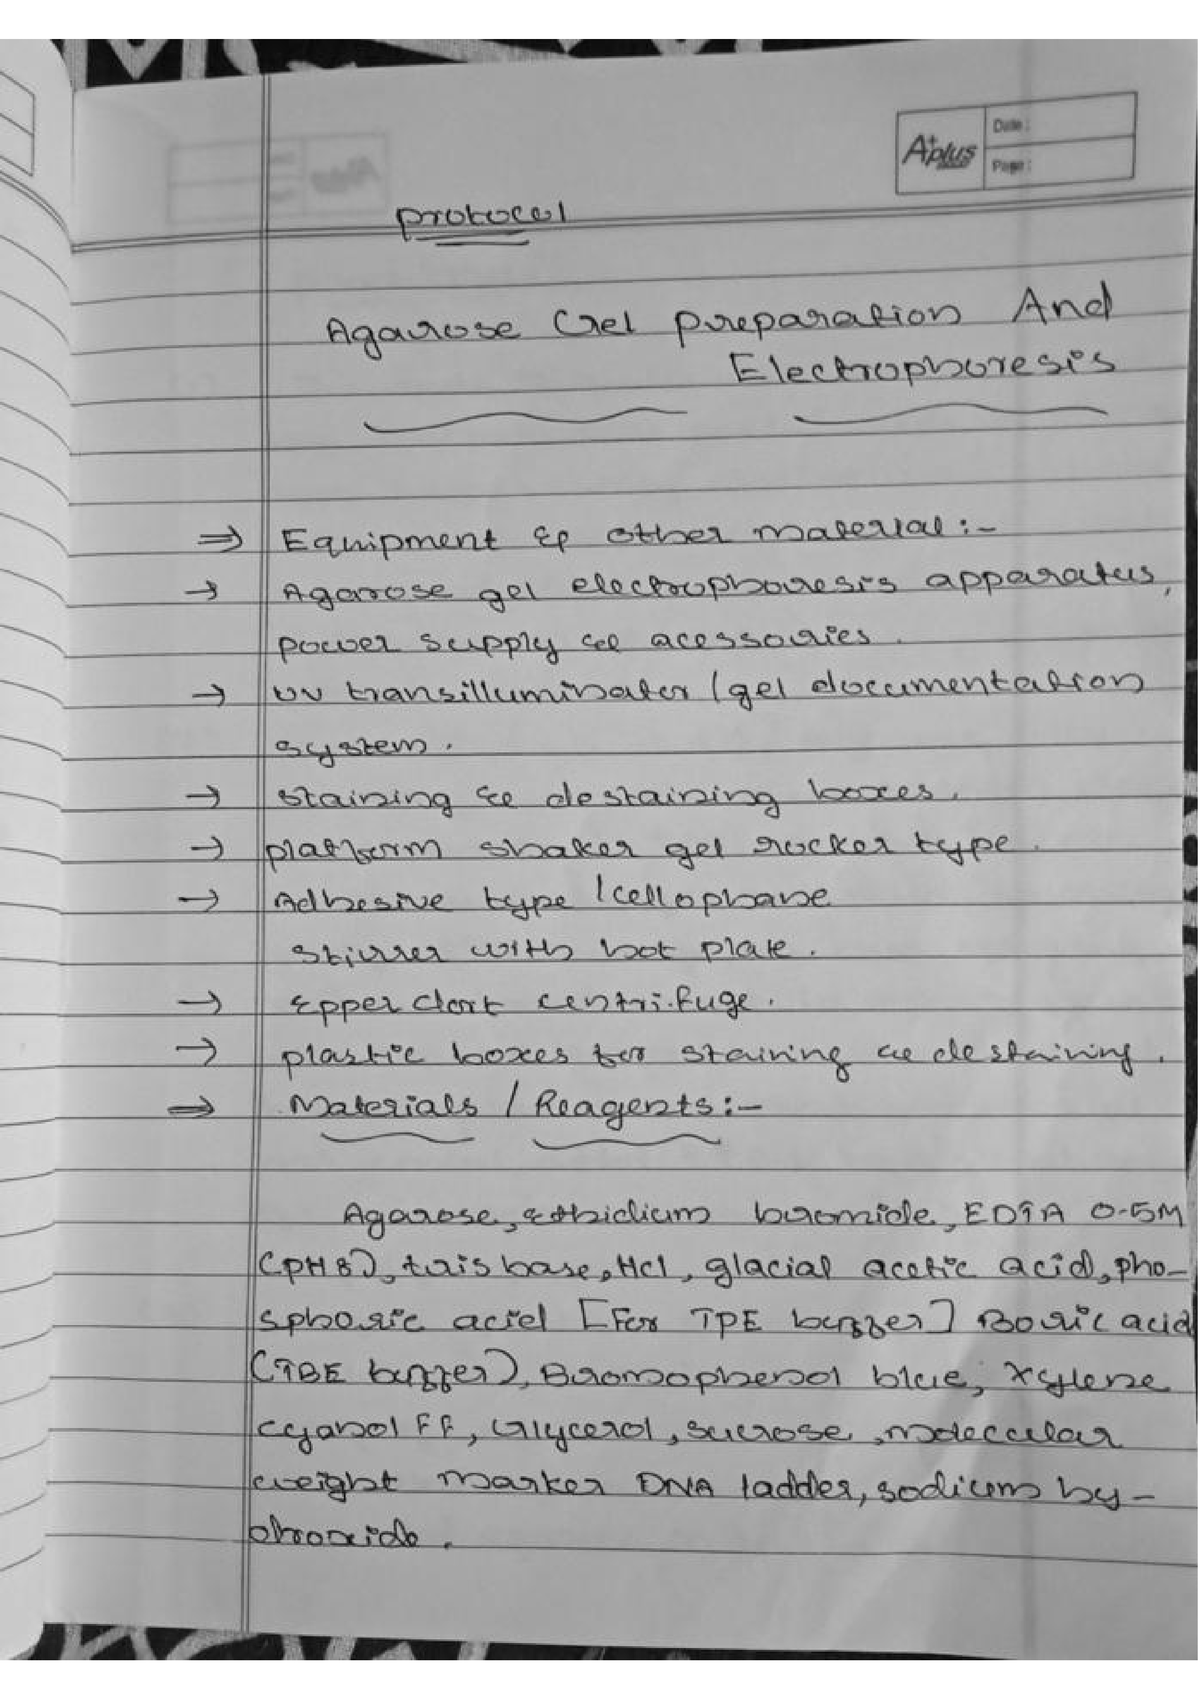 A+plus
Date :
Page :
Protocol
Agarose Gel Preparation And
Electrophoresis
⇒ Equipment & other material :-
→ Agarose gel electrophoresis apparatus,
power supply & acessories.
→ UV transilluminator / gel documentation
system.
→ staining & destaining boxes.
→ platform shaker gel rocker type.
→ Adhesive type / cellophane
stirrer with hot plate.
→ Eppendort centrifuge.
→ plastic boxes for staining & destaining.
⇒ Materials / Reagents :-
Agarose, Ethidium bromide, EDTA 0.5M
(PH 8), tris base, Hcl, glacial acetic acid, pho-
sphoric acid [For TPE buffer] Boric acid
(TBE buffer), Bromophenol blue, Xylene
cyanol FF, Glycerol, sucrose, molecular
weight marker DNA ladder, sodium hy-
droxide.